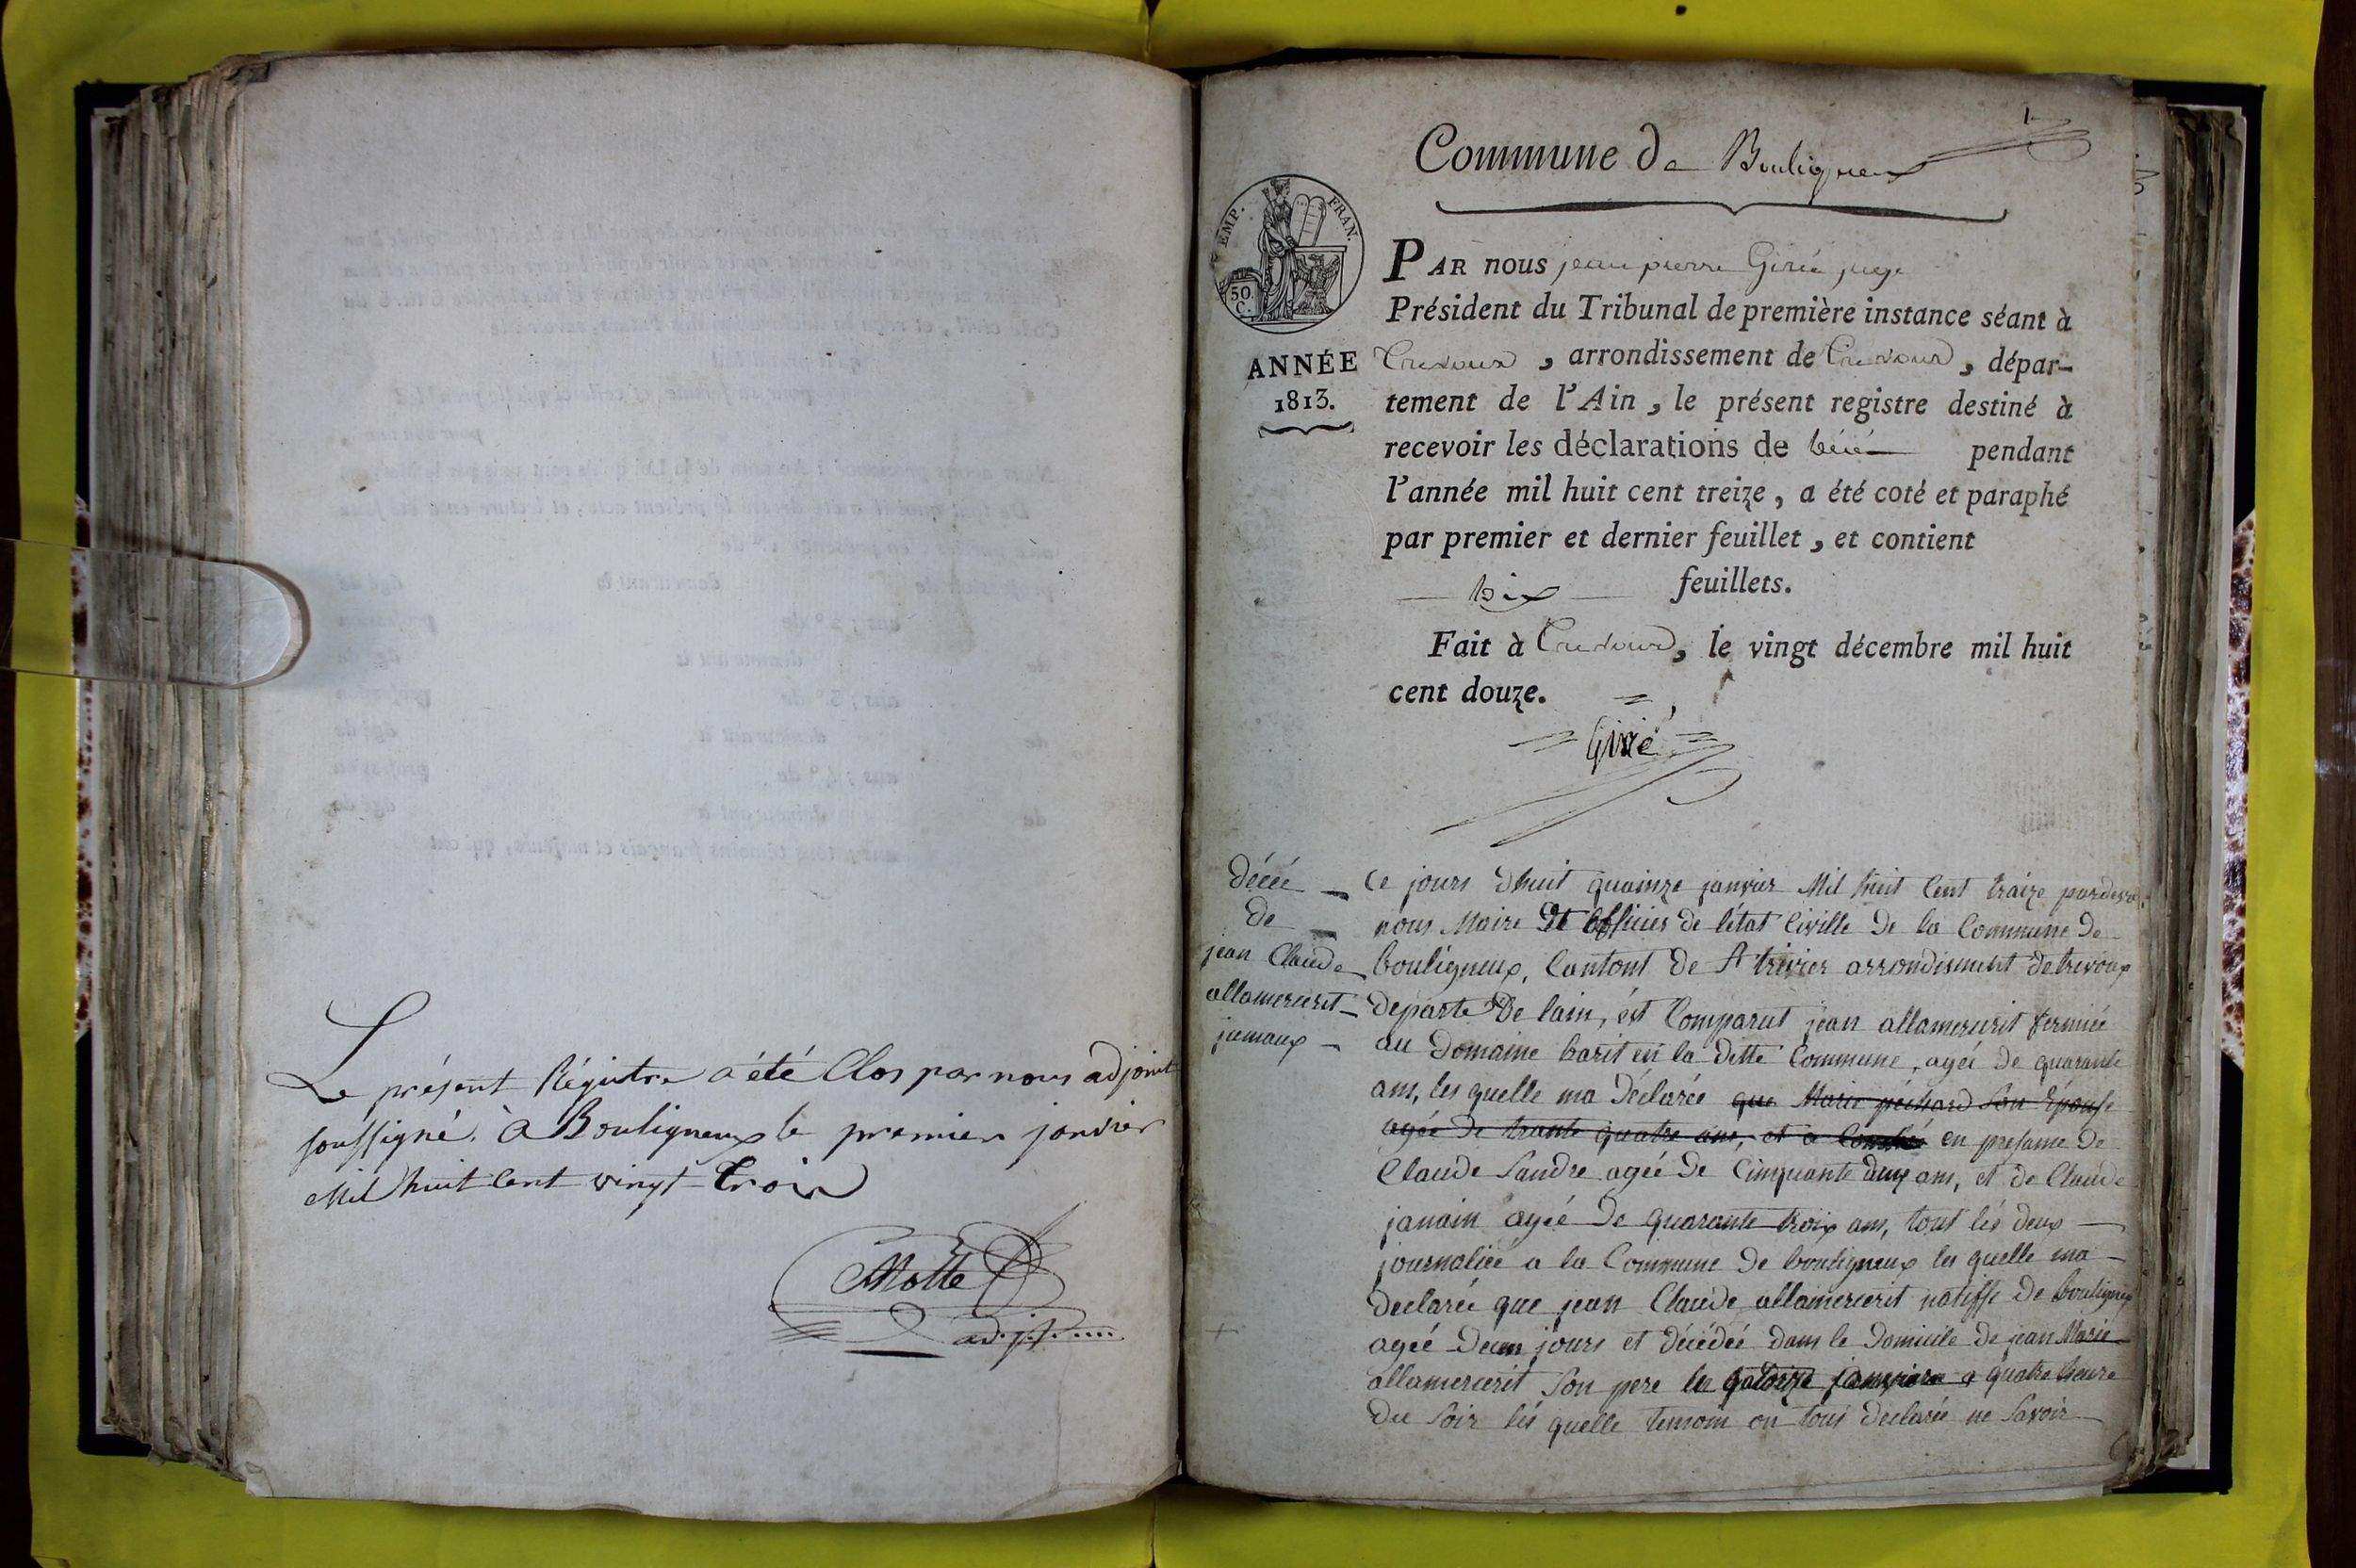 Le présent Régistre a été Clos par nous adjoint
soussigné. à Bouligneux le premier janvier
Mil huit Cent vingt trois
Motte
adjt
1
Commune de Bouligneux
EMP. FRAN.
50 C.
ANNÉE
1813.
PAR nous jean pierre Girié juge
Président du Tribunal de première instance séant à
Trevoux, arrondissement de Trevoux, dépar-
tement de l'Ain, le présent registre destiné à
recevoir les déclarations de décés pendant
l'année mil huit cent treize, a été coté et paraphé
par premier et dernier feuillet, et contient
six feuillets.
Fait à Trevoux, le vingt décembre mil huit
cent douze.
Girié
Décée
de
jean Claude
allamercerit
jumaux
Ce jours dhuit quainze janvier Mil huit Cent traize pardeva
nous Maire et officier de létat Civille de la Commune de
bouligneux, Cantont de St trivier arrondisment de trevoux
departe De lain, est Comparut jean allamercerit fermiée
au Domaine barit en la ditte Commune, ageé de quarante
ans, les quelle ma Déclarée que Marie péchard son Epouse
ageé de trante quatre ans, et a en presame de
Claude Sandre ageé de Cinquante deux ans, et de Claude
janain ageé de quarante troix ans, tout lés deux
journaliée a la Commune de bouligneux les quelle ma
declareé que jean Claude allamercerit natiffe de bouligneux
ageé deun jours et décédeé dans le domicile de jean Marie
allamercerit son pere le quatorze janvier a quatre heure
du soir lés quelle temoin on tous declareé ne savoir